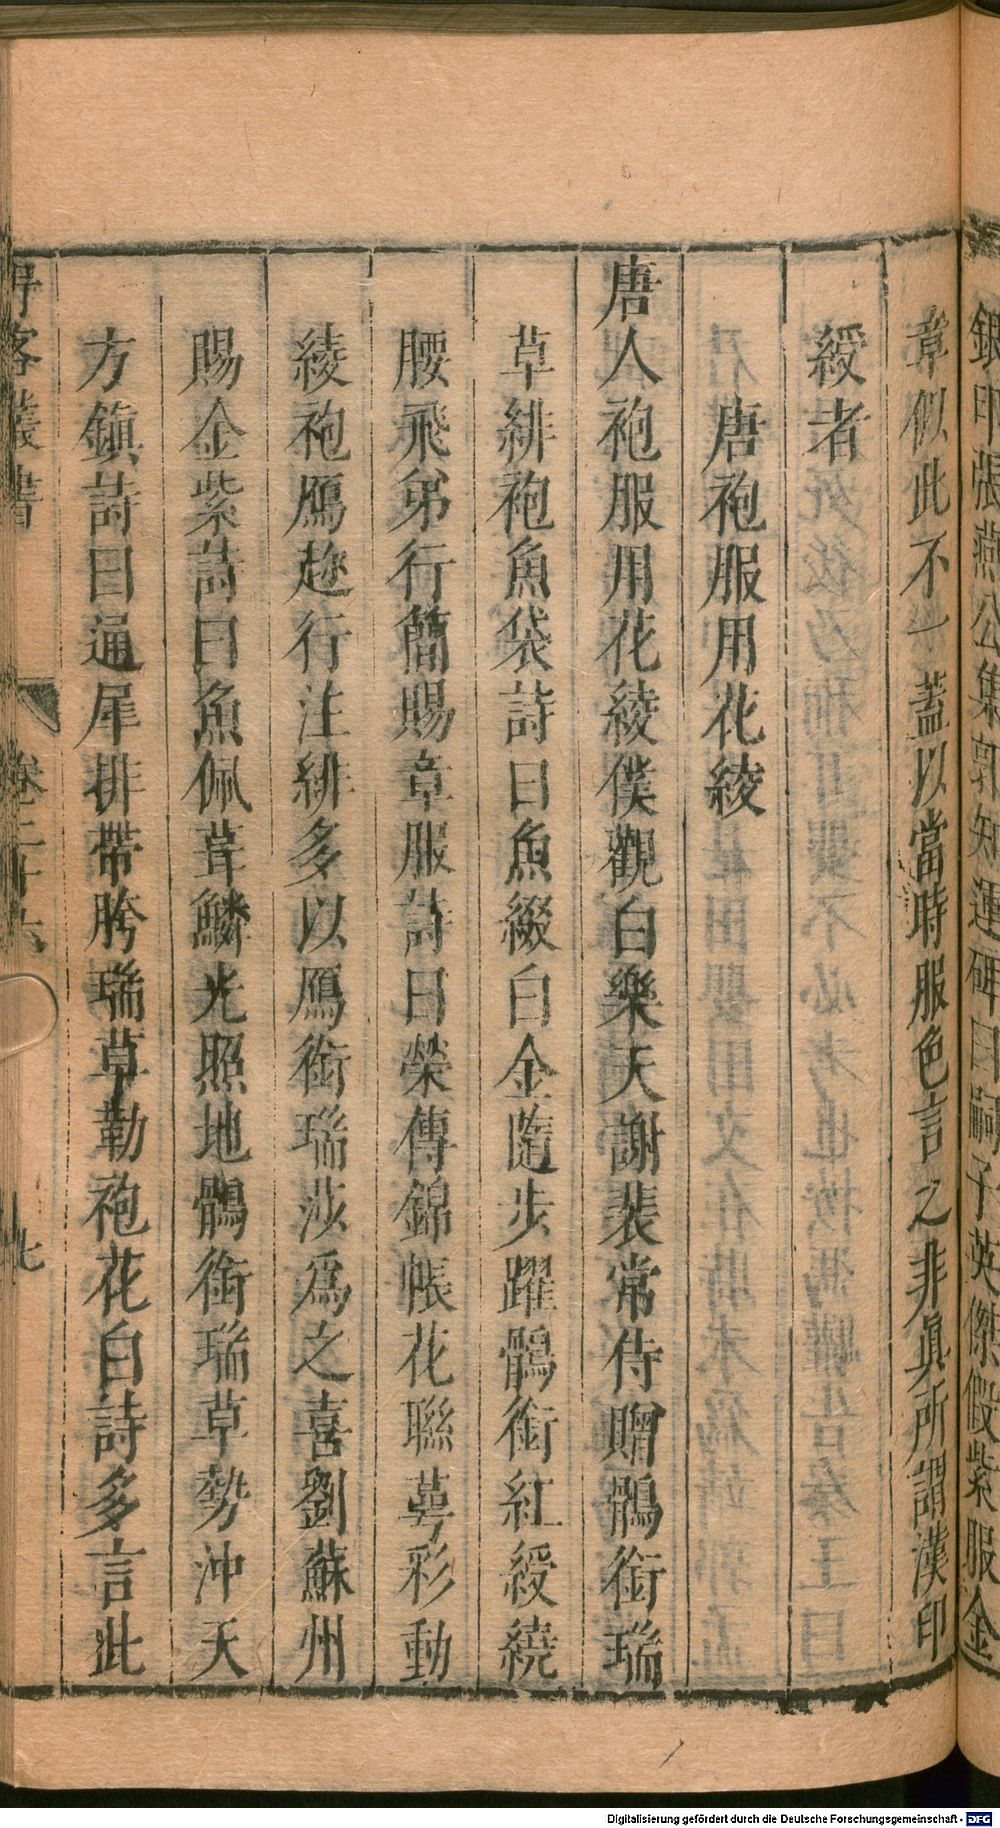 銀印張燕公集郭知運碑曰嗣子英傑假紫服金
章似此不一蓋以當時服色言之非眞所謂漢印
綬者
唐袍服用花綾
唐人袍服用花綾僕觀白樂天謝裴常侍贈鶻銜瑞
草緋袍魚袋詩曰魚綴白金隨步躍鶻銜紅綬繞
腰飛弟行簡賜章服詩曰榮傳錦帳花聯萼彩動
綾袍鴈趂行注緋多以鴈銜瑞莎爲之喜劉蘇州
賜金紫詩曰魚佩葺鱗光照地鶻銜瑞草勢沖天
方鎮詩曰通犀排帶胯瑞草勒袍花白詩多言此
客叢書
卷二十六
七
Digitalisierung gefördert durch die Deutsche Forschungsgemeinschaft - DFG